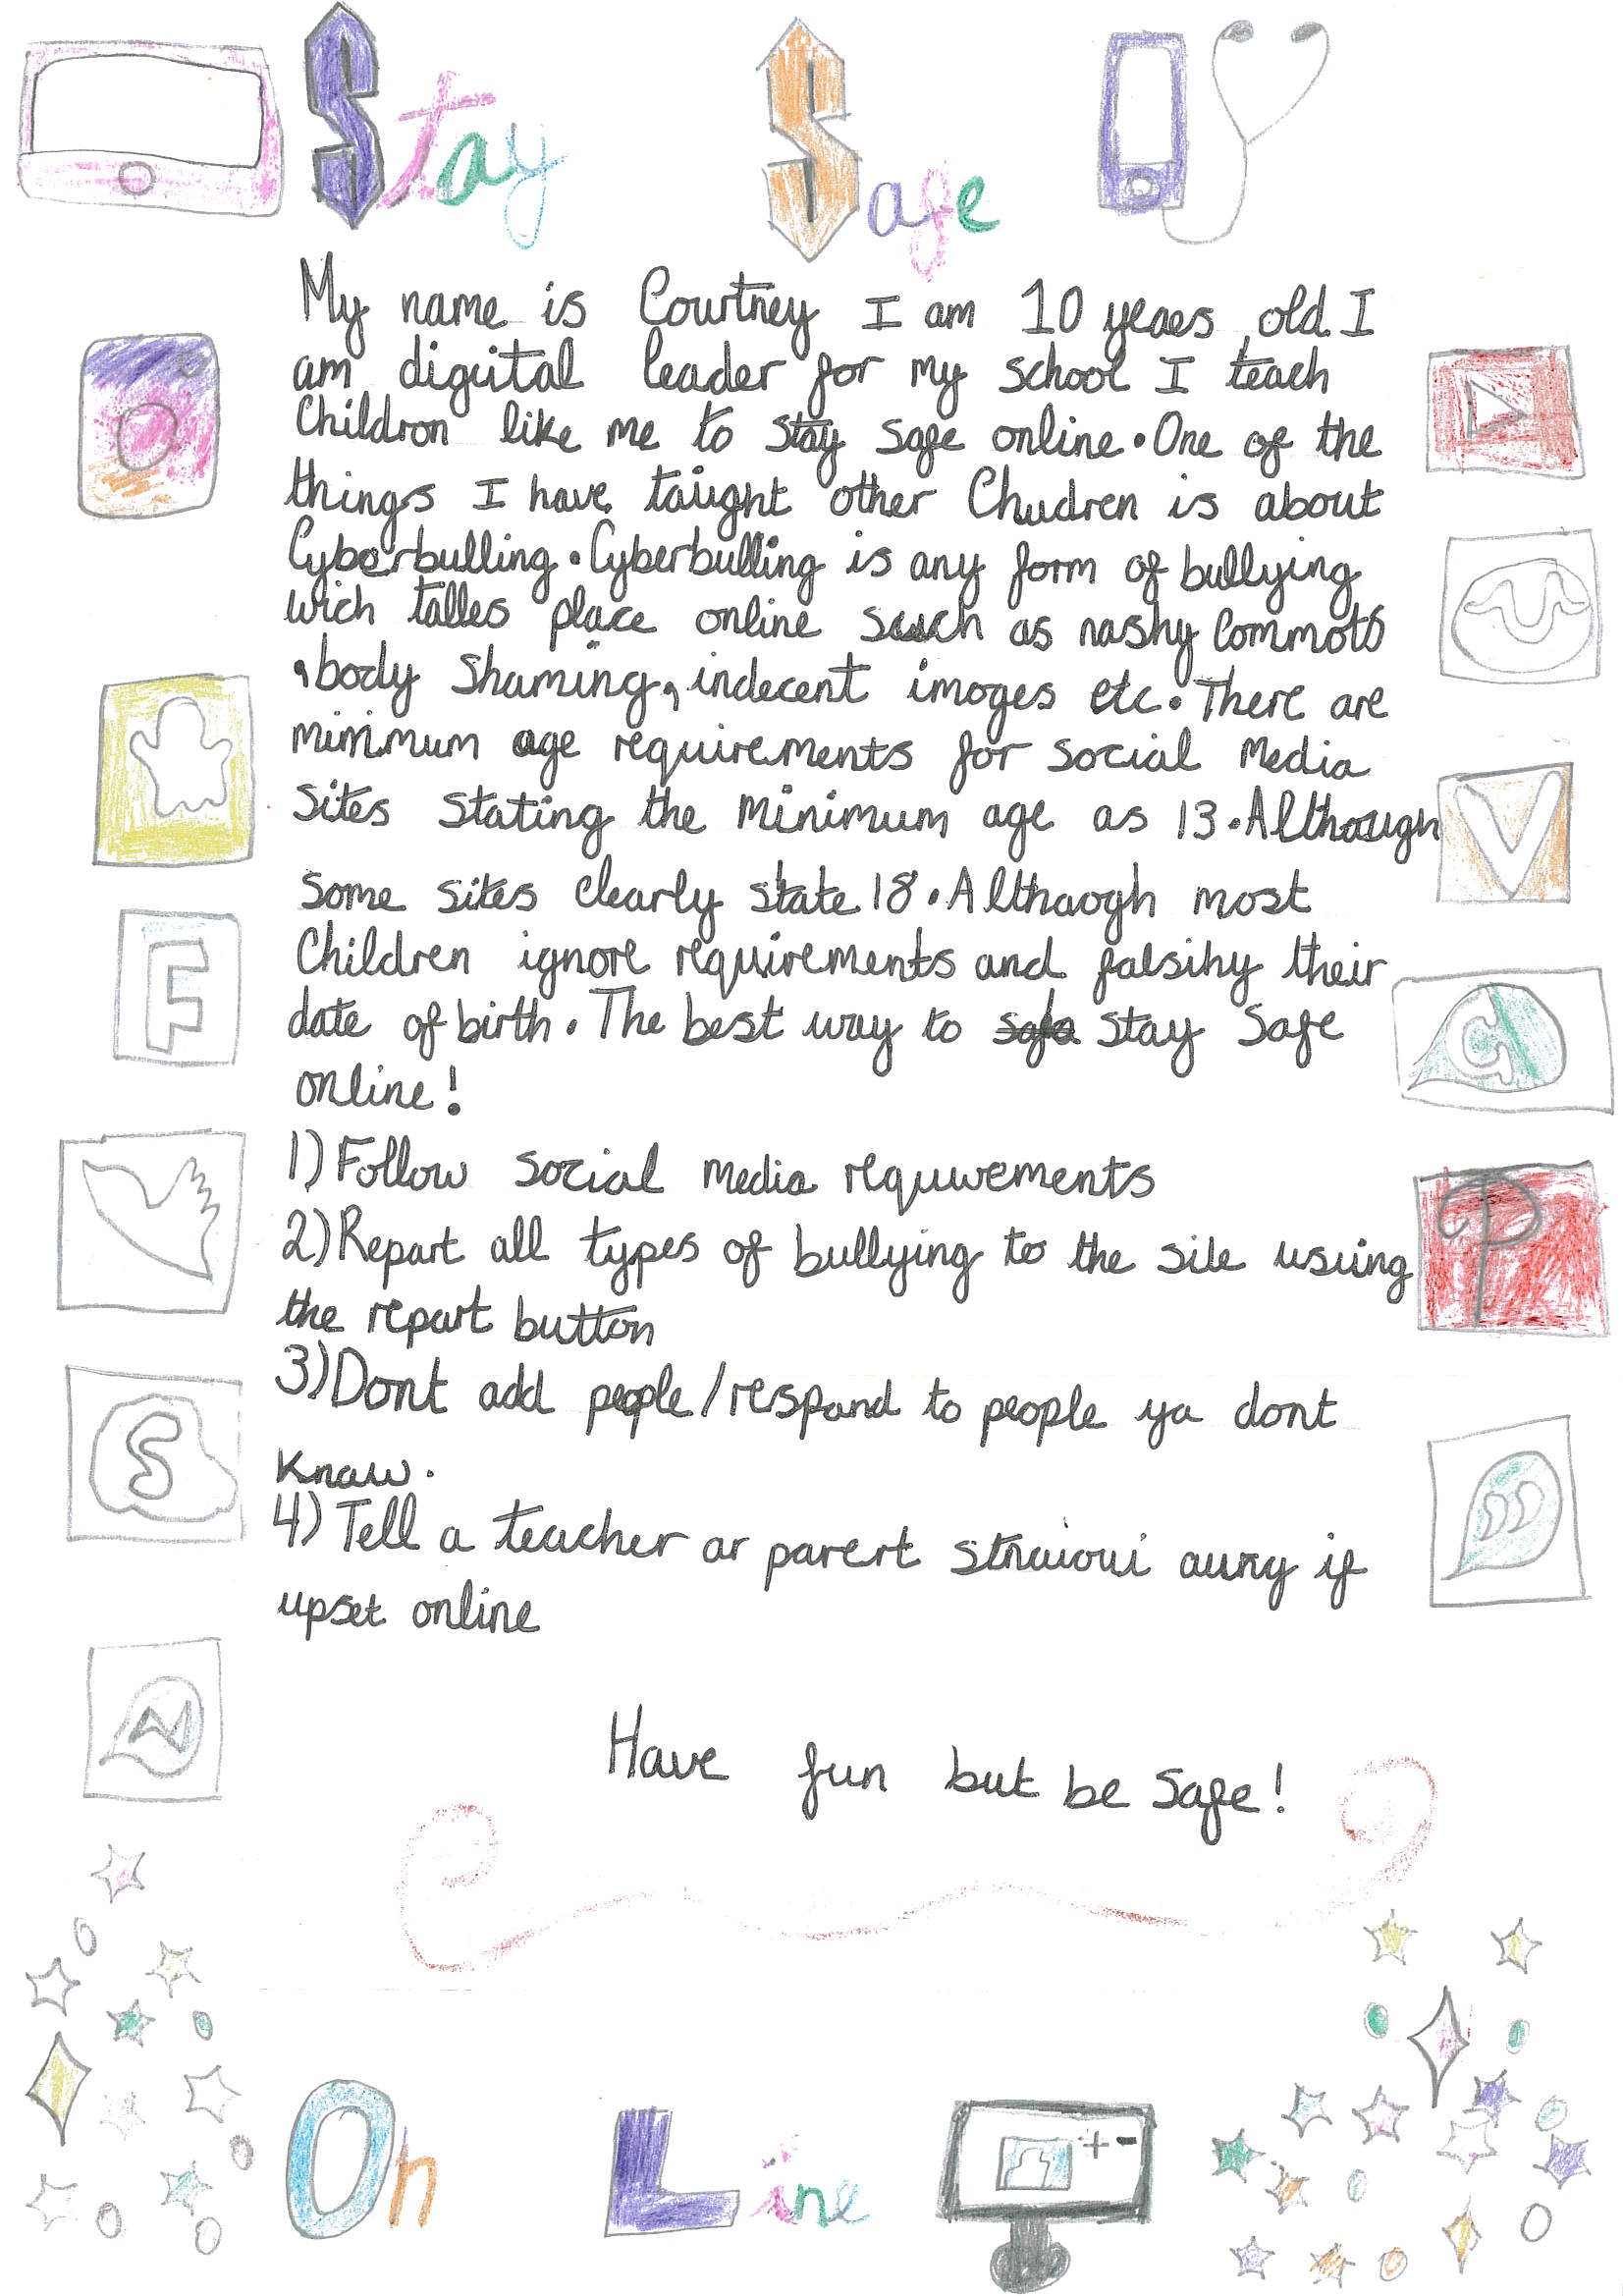 Stay Safe
My name is Courtney I am 10 years old. I
am digital leader for my school I teach
Children like me to stay safe online. One of the
things I have taught other Children is about
Cyberbulling. Cyberbulling is any form of bullying
wich takes place online such as nashy Commots
, body Shaming, indecent images etc. There are
minimum age requirements for social Media
Sites stating the minimum age as 13. Although
some sites clearly state 18. Althaogh most
Children ignore requirements and falsihy their
date of birth. The best way to safe stay safe
online!
1) Follow social media requirements
2) Report all types of bullying to the site using
the report button
3) Dont add people/respond to people ya dont
know.
4) Tell a teacher or parent away if
upset online
Have fun but be safe!
F
V
G
P
S
On Line
+ -